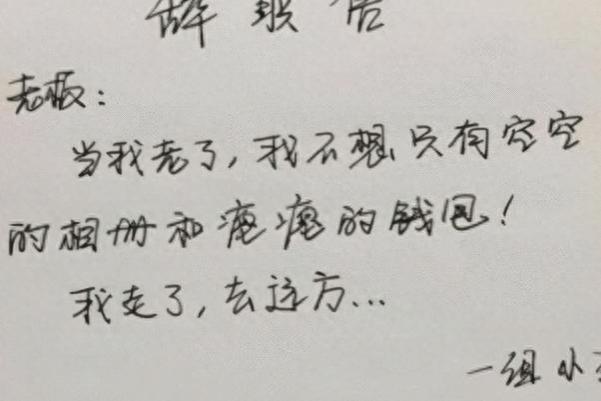 辞职报告
老板：
当我老了，我不想只有空空
的相册和瘪瘪的钱包！
我走了，去远方...
一组小